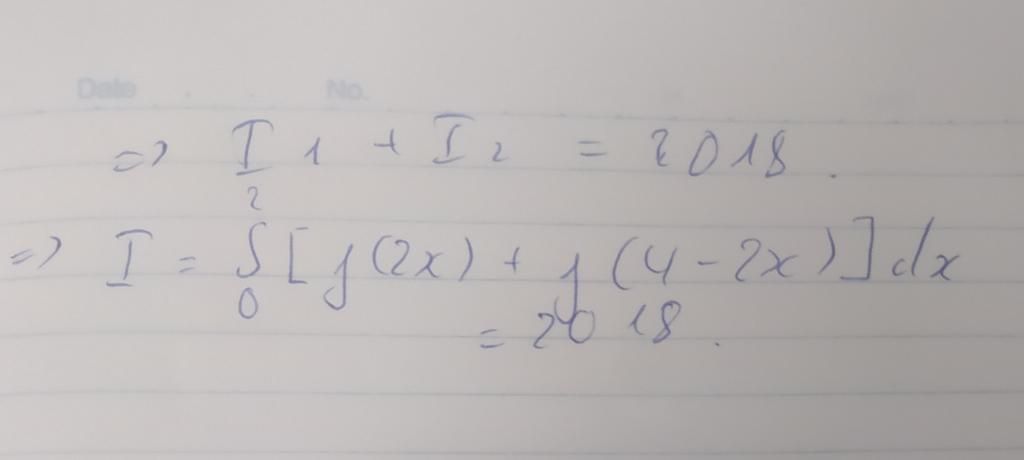 Date No.
=> I1 + I2 = 2018.
=> I = ∫₀² [f(2x) + f(4-2x)]dx
= 2018.